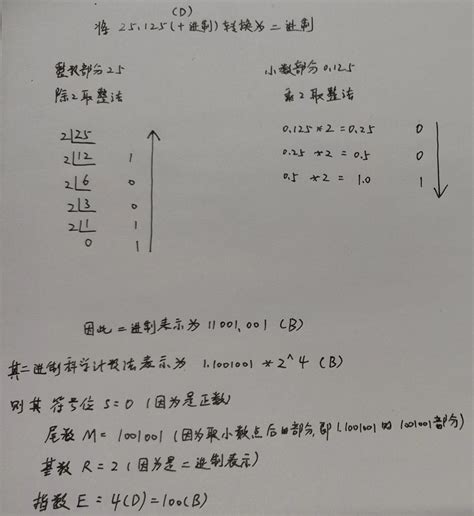 (D)
将 25.125(十进制)转换为二进制
整数部分25
小数部分0.125
除2取整法
乘2取整法
2|25
2|12 1
2|6 0
2|3 0
2|1 1
0 1
0.125*2=0.25 0
0.25 *2=0.5 0
0.5 *2= 1.0 1
因此二进制表示为 11001.001 (B)
其二进制科学计数法表示为 1.1001001 *2^4 (B)
则其 符号位 S=0 (因为是正数)
尾数 M= 1001001 (因为取小数点后的部分,即1.1001001的1001001部分)
基数 R=2 (因为是二进制表示)
指数 E = 4(D)=100(B)